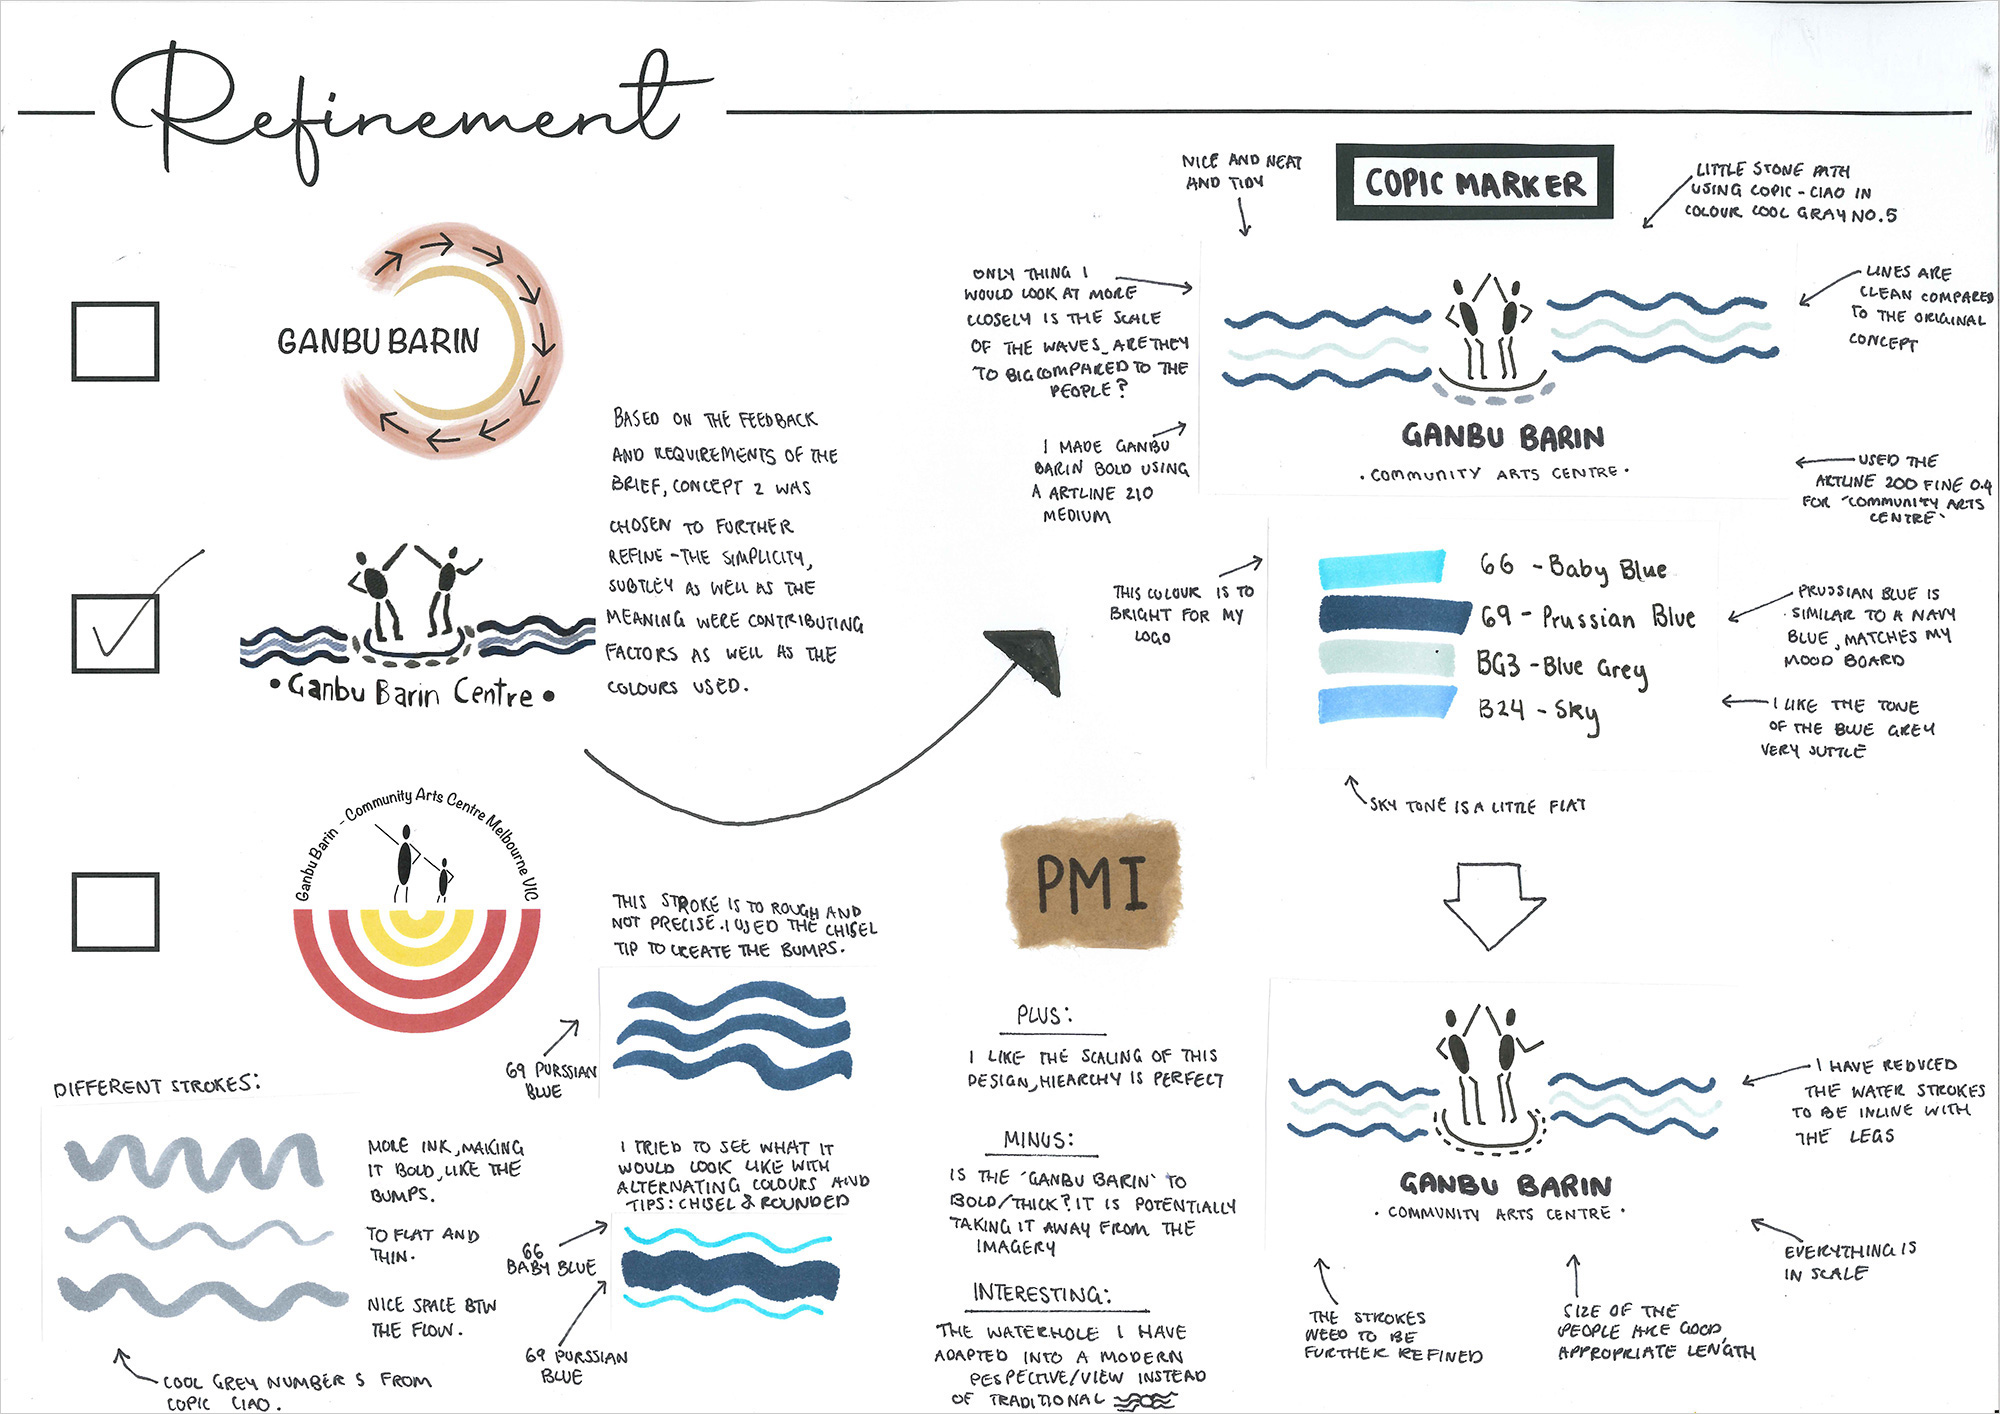 Refinement
GANBU BARIN
BASED ON THE FEEDBACK
AND REQUIREMENTS OF THE
BRIEF, CONCEPT 2 WAS
CHOSEN TO FURTHER
REFINE - THE SIMPLICITY,
SUBTLEY AS WELL AS THE
MEANING WERE CONTRIBUTING
FACTORS AS WELL AS THE
COLOURS USED.
• Ganbu Barin Centre •
Ganbu Barin - Community Arts Centre Melbourne VIC
DIFFERENT STROKES:
MORE INK, MAKING
IT BOLD, LIKE THE
BUMPS.
TO FLAT AND
THIN.
NICE SPACE BTW
THE FLOW.
COOL GREY NUMBER 5 FROM
COPIC CIAO.
THIS STROKE IS TO ROUGH AND
NOT PRECISE. I USED THE CHISEL
TIP TO CREATE THE BUMPS.
69 PURSSIAN
BLUE
I TRIED TO SEE WHAT IT
WOULD LOOK LIKE WITH
ALTERNATING COLOURS AND
TIPS: CHISEL & ROUNDED
66
BABY BLUE
69 PURSSIAN
BLUE
COPIC MARKER
NICE AND NEAT
AND TIDY
LITTLE STONE PATH
USING COPIC - CIAO IN
COLOUR COOL GRAY NO.5
ONLY THING I
WOULD LOOK AT MORE
CLOSELY IS THE SCALE
OF THE WAVES, ARE THEY
TO BIG COMPARED TO THE
PEOPLE?
LINES ARE
CLEAN COMPARED
TO THE ORIGINAL
CONCEPT
I MADE GANBU
BARIN BOLD USING
A ARTLINE 210
MEDIUM
GANBU BARIN
• COMMUNITY ARTS CENTRE •
USED THE
ARTLINE 200 FINE 0.4
FOR 'COMMUNITY ARTS
CENTRE'
THIS COLOUR IS TO
BRIGHT FOR MY
LOGO
66 - Baby Blue
69 - Prussian Blue
BG3 - Blue Grey
B24 - Sky
PRUSSIAN BLUE IS
SIMILAR TO A NAVY
BLUE, MATCHES MY
MOOD BOARD
I LIKE THE TONE
OF THE BLUE GREY
VERY SUTTLE
SKY TONE IS A LITTLE FLAT
PMI
PLUS:
I LIKE THE SCALING OF THIS
DESIGN, HIEARCHY IS PERFECT
MINUS:
IS THE 'GANBU BARIN' TO
BOLD/THICK? IT IS POTENTIALLY
TAKING IT AWAY FROM THE
IMAGERY
INTERESTING:
THE WATERHOLE I HAVE
ADAPTED INTO A MODERN
PESPECTIVE/VIEW INSTEAD
OF TRADITIONAL
GANBU BARIN
• COMMUNITY ARTS CENTRE •
I HAVE REDUCED
THE WATER STROKES
TO BE INLINE WITH
THE LEGS
EVERYTHING IS
IN SCALE
THE STROKES
NEED TO BE
FURTHER REFINED
SIZE OF THE
PEOPLE ARE GOOD,
APPROPRIATE LENGTH